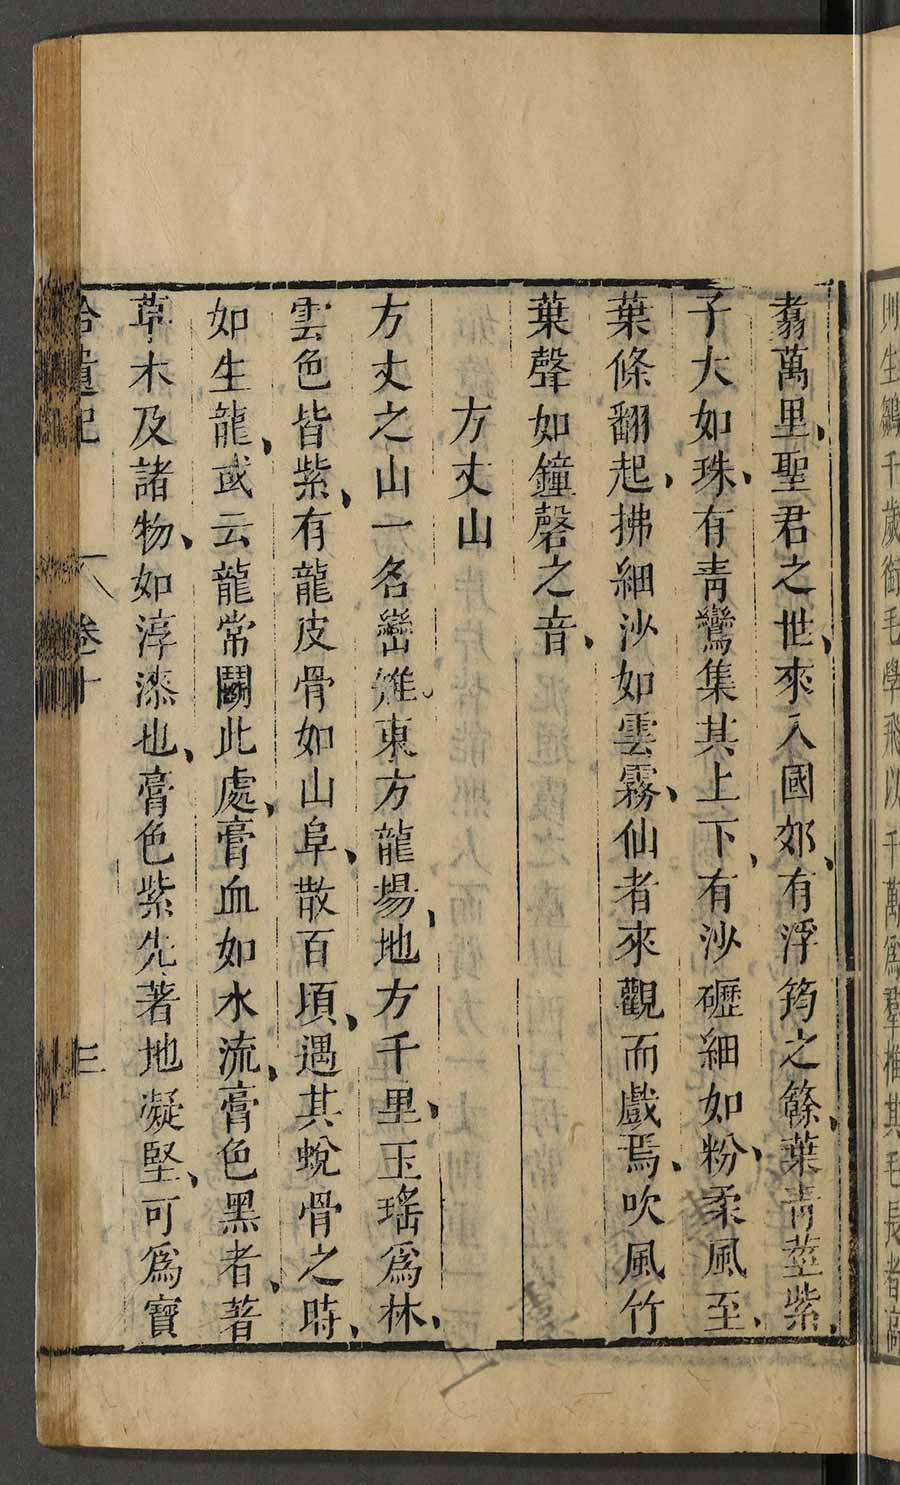 則生鶵千歲銜毛學飛以千萬爲羣推其毛長者高
翥萬里、聖君之世、來入國郊、有浮筠之簳、葉靑莖紫、
子大如珠、有靑鸞集其上下、有沙礰細如粉、柔風至、
葉條翻起、拂細沙如雲霧、仙者來觀而戲焉、吹風竹
葉聲如鐘磬之音、
方丈山
方丈之山一名巒雉東方龍場、地方千里、玉瑤爲林、
雲色皆紫、有龍皮骨如山阜、散百頃、遇其蛻骨之時、
如生龍、或云龍常鬭此處、膏血如水流、膏色黑者、著
草木及諸物、如淳漆也、膏色紫先著地凝堅、可爲寶
拾遺記 卷十 三